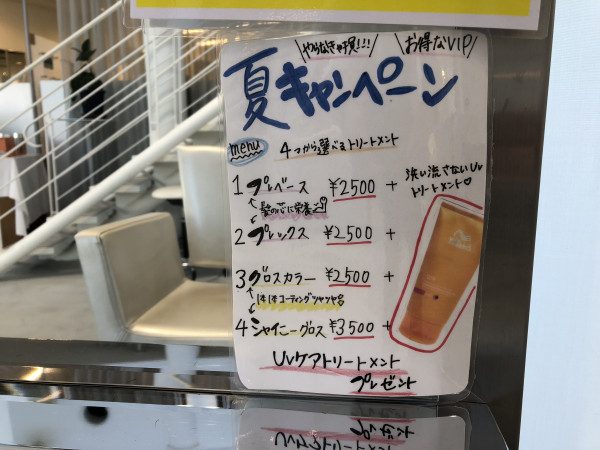 やらなきゃ損!!! お得なVIP
夏キャンペーン
menu 4つから選べるトリートメント
1 プレベース ¥2500 +
髪の芯に栄養
2 プレックス ¥2,500 +
3 グロスカラー ¥2500 +
1本1本コーティングツヤツヤ
4 シャイニーグロス ¥3500 +
洗い流さないUv
トリートメント♡
Uvケアトリートメント
プレゼント